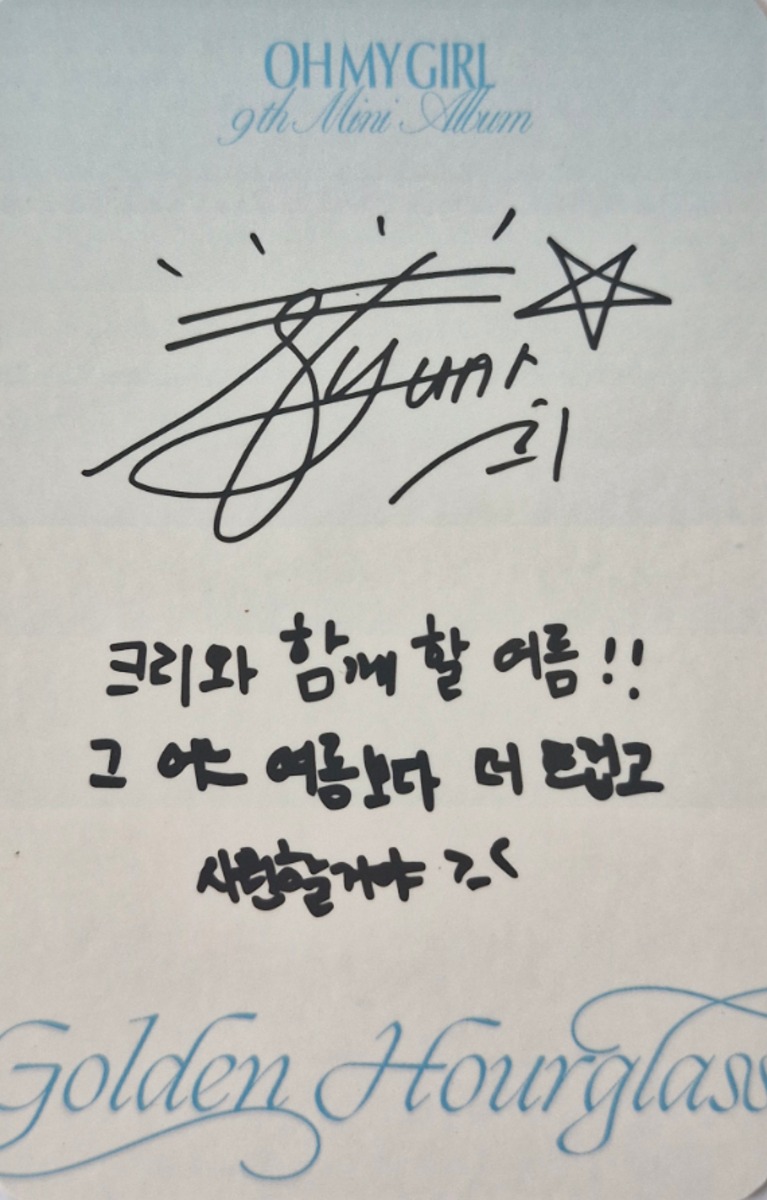 OH MY GIRL
9th Mini Album
yuhi
크리와 함께 할 여름!!
그 어느 여름보다 더 뜨겁고
시원할거야 >_<
Golden Hourglass